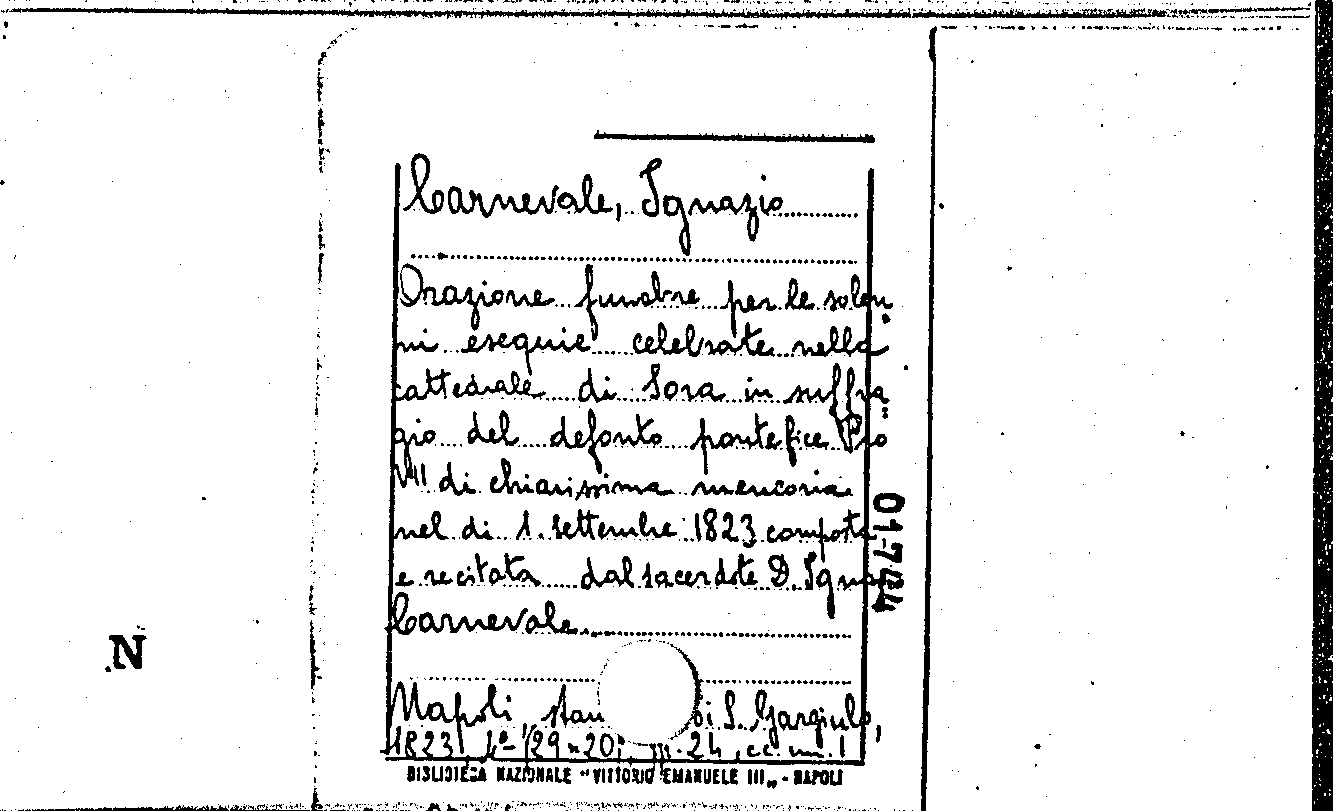 Carnevale, Ignazio
Orazione funebre per le solen
ni esequie celebrate nella
cattedrale di Sora in suffra
gio del defonto pontefice Pio
VII di chiarissima memoria
nel dì 1. settembre 1823 composta
e recitata dal sacerdote D. Ignazio
Carnevale.
Napoli, stam di S. Gargiulo,
1823, 4º (29×20; 24, cc. nn. 1
BIBLIOTECA NAZIONALE "VITTORIO EMANUELE III" - NAPOLI
N